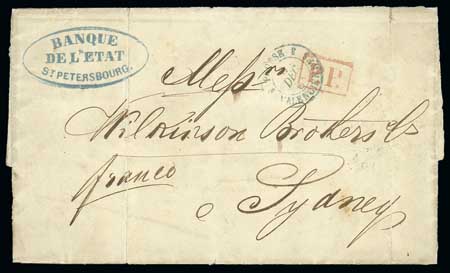 BANQUE
DE L'ETAT
ST PETERSBOURG.
P.P.
Messrs
Wilkinson Brothers & Co
franco
Sydney